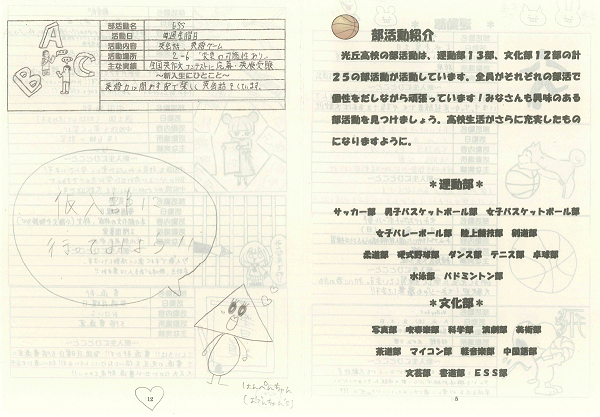 部活動名 ESS
活動日 毎週金曜日
活動内容 英会話、英語ゲーム
活動場所 2-6
主な実績 全国英作文コンテストに応募・英検受験
～新入生にひとこと～
A
B
C
仮入部に
12
部活動紹介
光丘高校の部活動は、運動部13部、文化部12部の計
25の部活動が活動しています。全員がそれぞれの部活で
個性をだしながら頑張っています！みなさんも興味のある
部活動を見つけましょう。高校生活がさらに充実したもの
になりますように。
＊運動部＊
サッカー部 男子バスケットボール部 女子バスケットボール部
女子バレーボール部 陸上競技部 剣道部
柔道部 硬式野球部 ダンス部 テニス部 卓球部
水泳部 バドミントン部
＊文化部＊
写真部 吹奏楽部 科学部 演劇部 美術部
茶道部 マイコン部 軽音楽部 中国語部
文芸部 書道部 ESS部
5